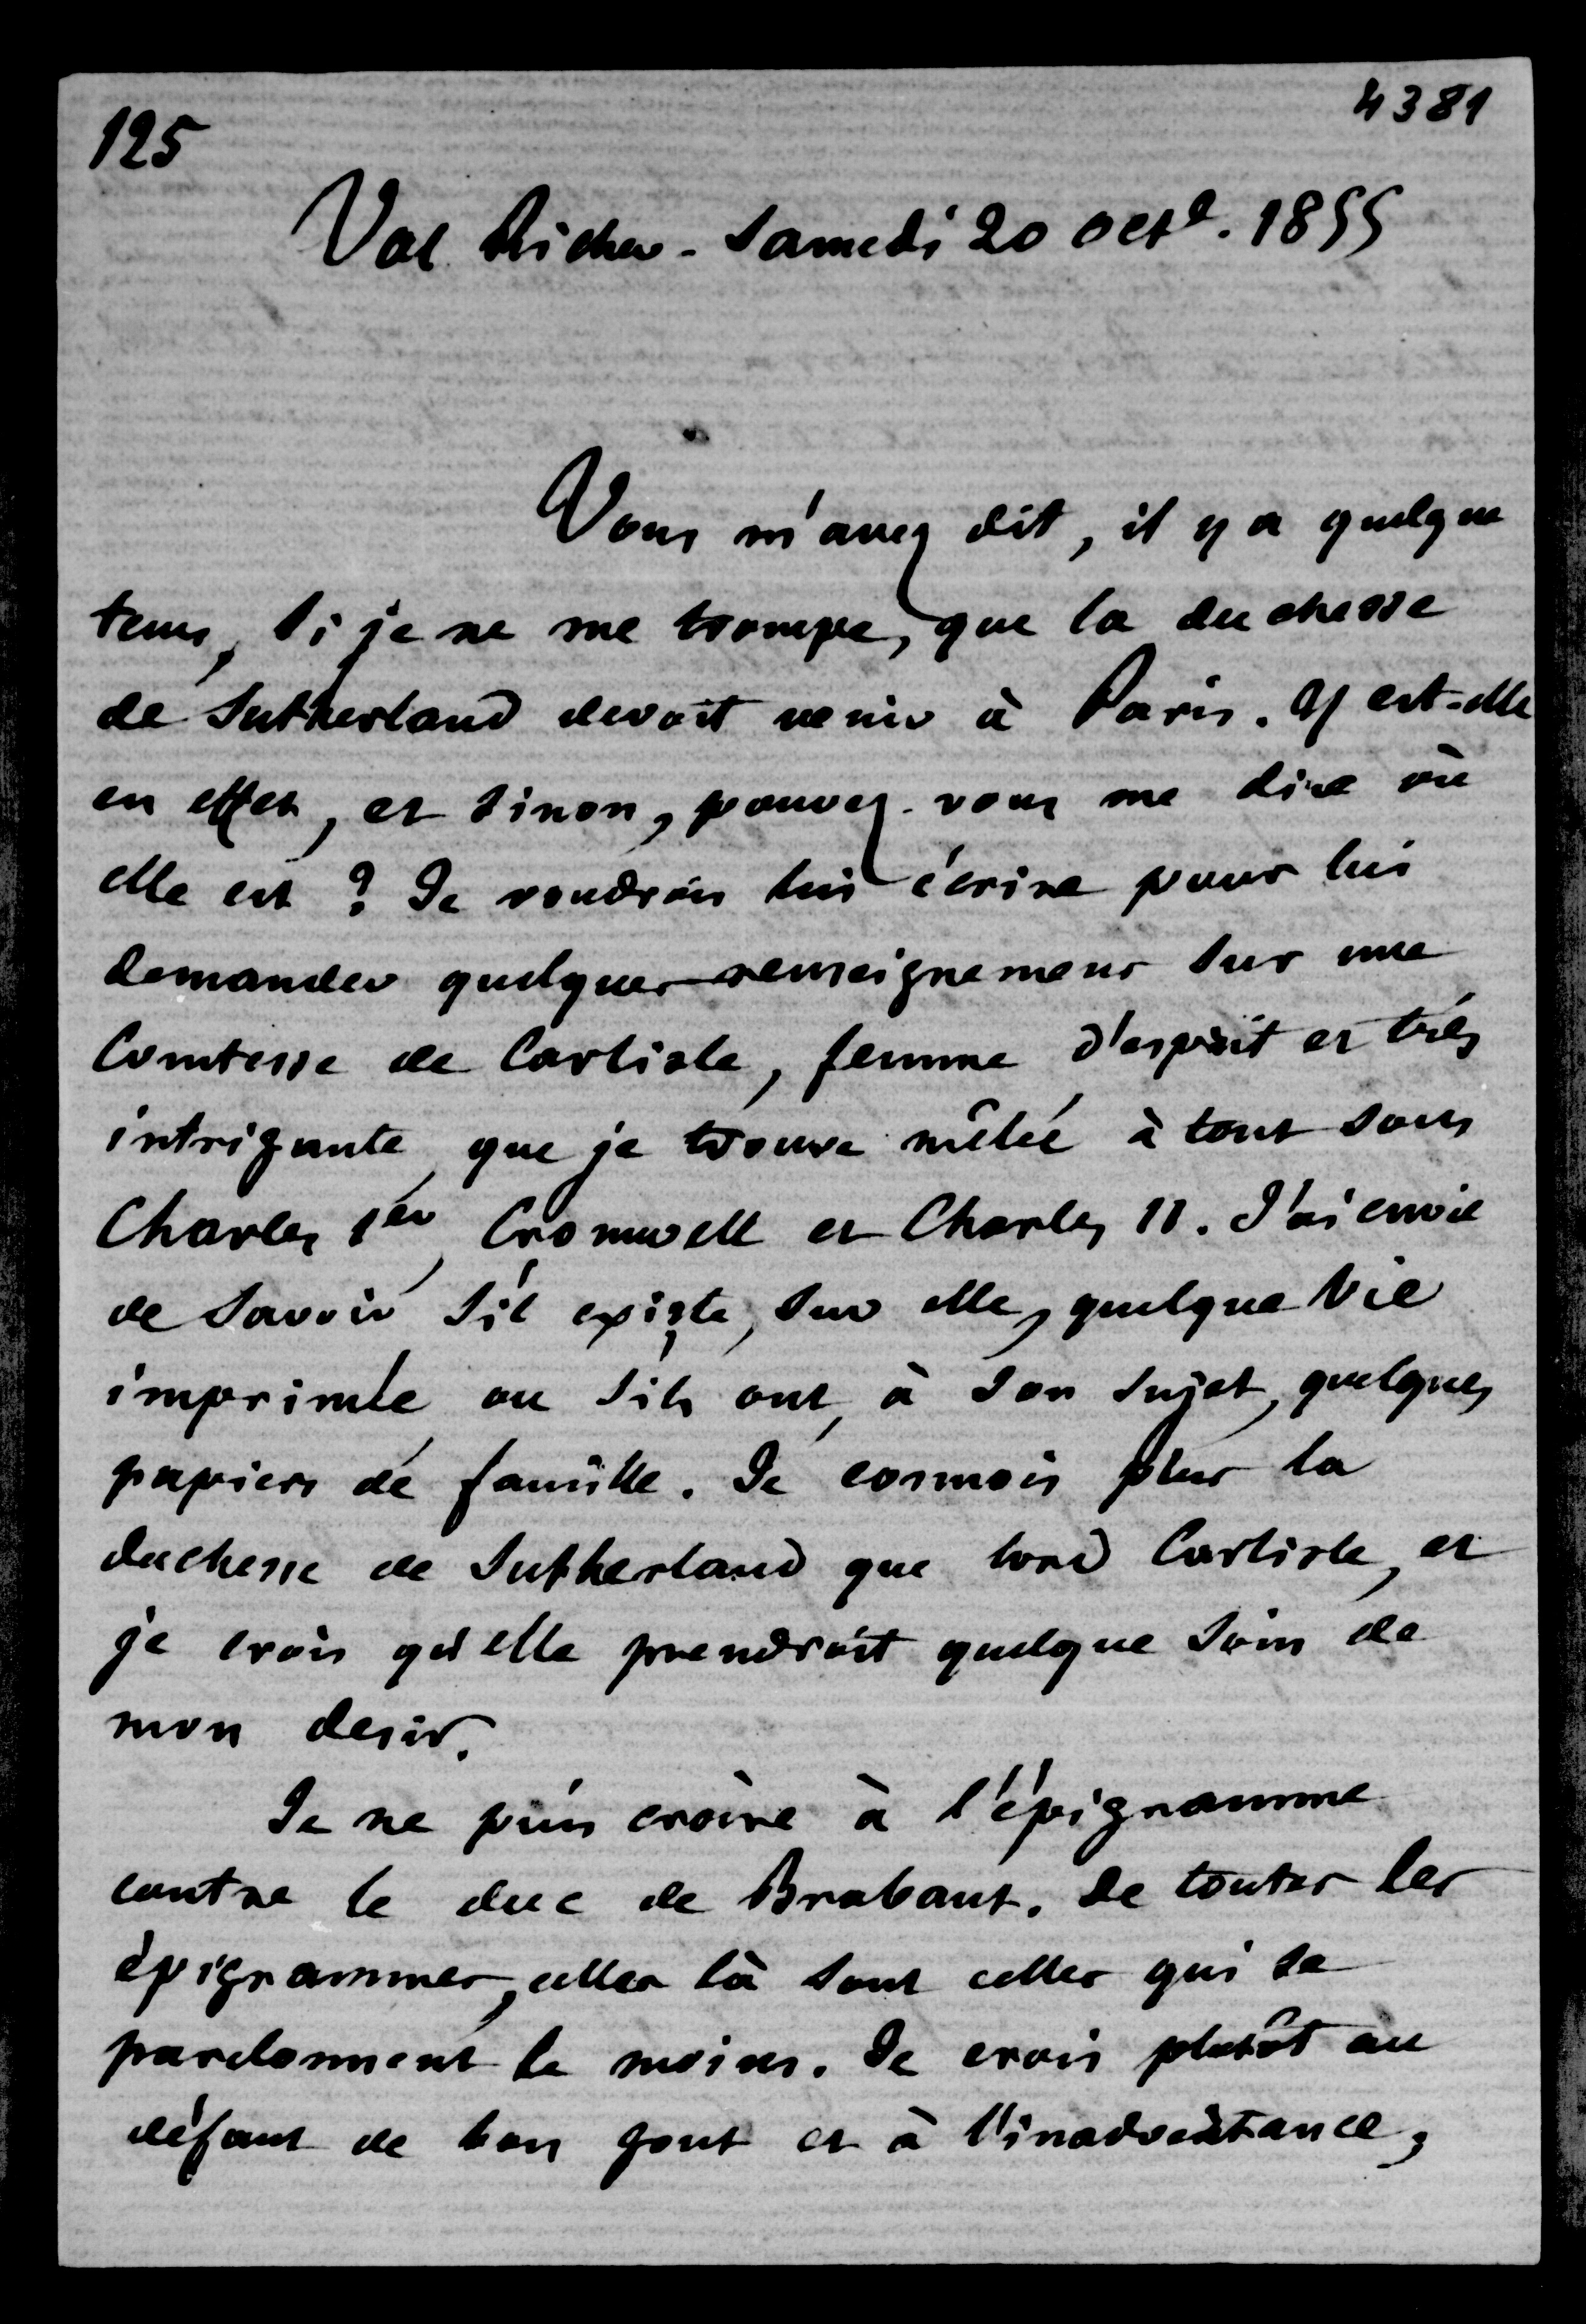 125
4381
Val Richer - Samedi 20 octe. 1855
Vous m'avez dit, il y a quelque
tems, si je ne me trompe, que la duchesse
de Sutherland devoit venir à Paris. Y est-elle
en effet, et sinon, pouvez-vous me dire où
elle est ? Je voudrois lui écrire pour lui
demander quelques renseignemens sur une
Comtesse de Carlisle, femme d'esprit et très
intrigante, que je trouve mêlée à tout sous
Charles 1er, Cromwell et Charles II. J'ai envie
de savoir s'il existe, sur elle, quelque vie
imprimée ou s'ils ont, à son sujet, quelques
papiers de famille. Je connois plus la
duchesse de Sutherland que lord Carlisle, et
je crois qu'elle prendroit quelque soin de
mon desir.
Je ne puis croire à l'épigramme
contre le duc de Brabant. De toutes les
épigrammes, celles là sont celles qui se
pardonnent le moins. Je crois plutôt au
défaut de bon gout et à l'inadvertance,